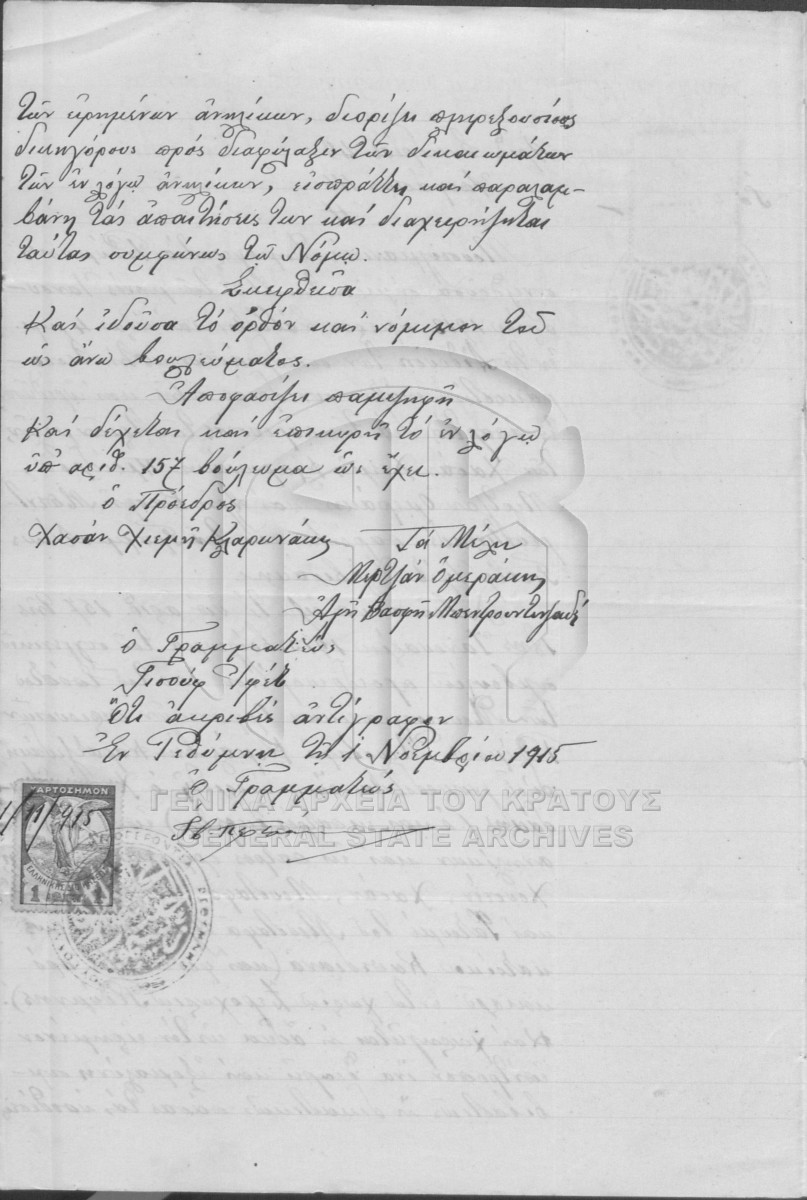 τῶν εἰρημένων ἀνηλίκων, διορίζῃ πληρεξουσίους
δικηγόρους πρός διαφύλαξιν τῶν δικαιωμάτων
τῶν ἐν λόγῳ ἀνηλίκων, εἰσπράττῃ καί παραλαμ-
βάνῃ τάς ἀπαιτήσεις των καί διαχειρίζηται
ταύτας συμφώνως τῷ Νόμῳ.
Σκεφθεῖσα
Καί ἰδοῦσα τό ὀρθόν καί νόμιμον τοῦ
ὡς ἄνω βουλεύματος.
Ἀποφασίζει παμψηφεί
Καί δέχεται καί ἐπικυροῖ τό ἐν λόγῳ
ὑπ' αριθ. 157 βούλευμα ὡς ἔχει.
ὁ Πρόεδρος
Χασάν Κλαρινάκης Τά Μέλη
Μερτζάν Ὀμεράκης
Ἀλῆ Βασφῆ
ὁ Γραμματεύς
Γισούφ Ἰφέτ
Ὅτι ἀκριβές ἀντίγραφον
Ἐν Ρεθύμνῃ τῇ 1 Νοεμβρίου 1915
Ὁ Γραμματεύς
ΧΑΡΤΟΣΗΜΟΝ
1/11/915
1
ΓΕΝΙΚΑ ΑΡΧΕΙΑ ΤΟΥ ΚΡΑΤΟΥΣ
GENERAL STATE ARCHIVES